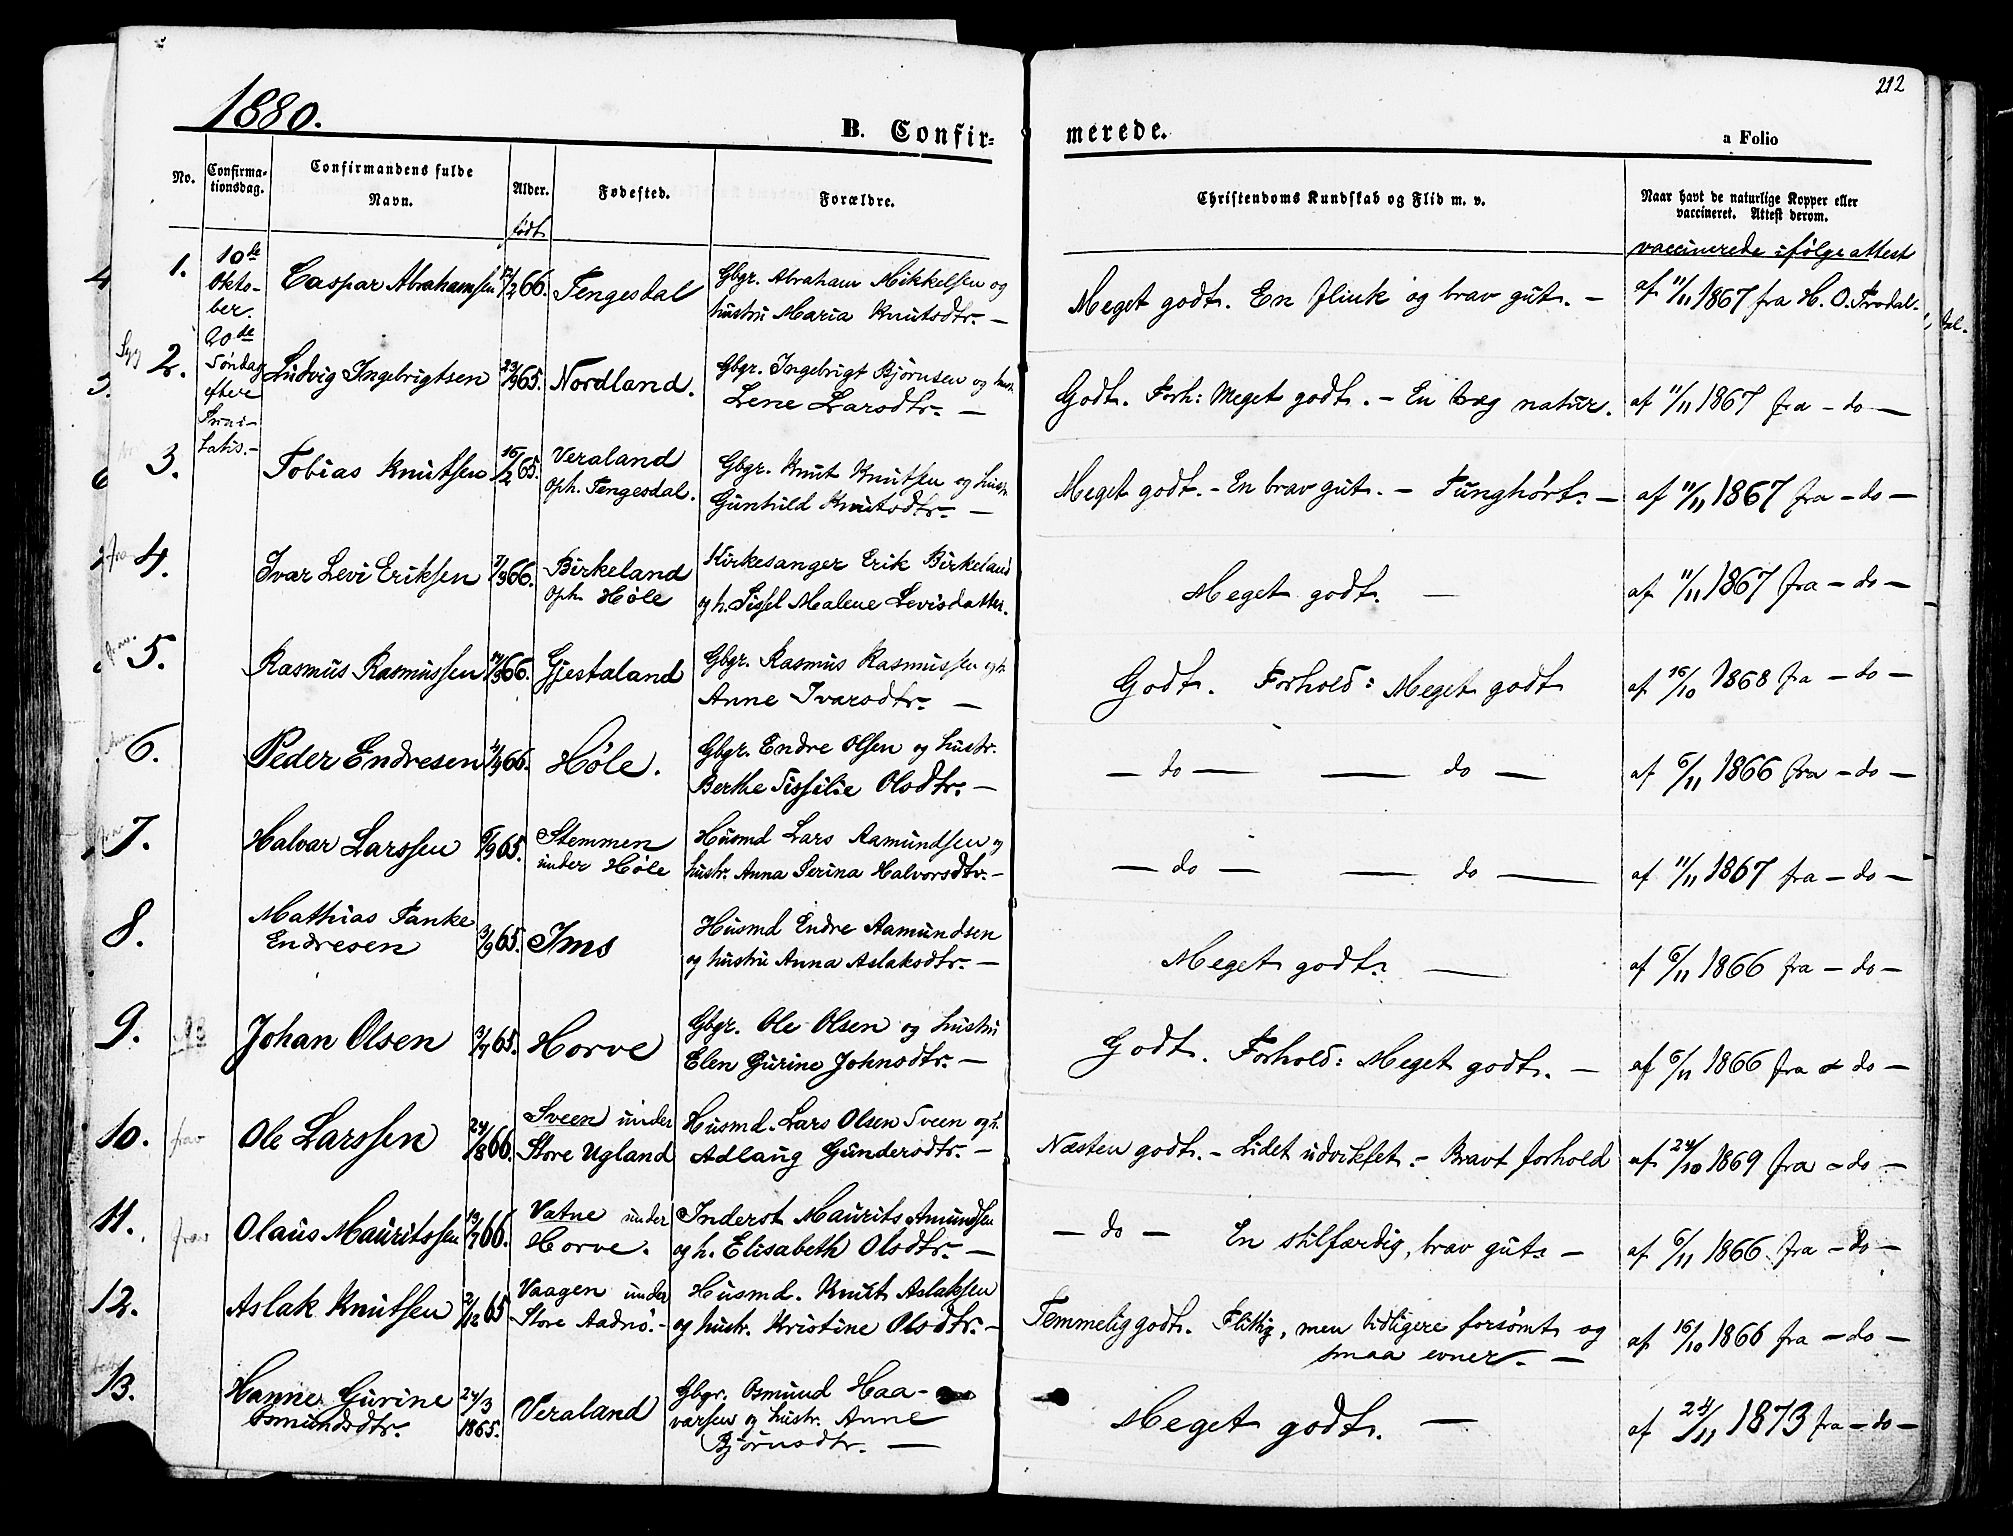 212
1880.
B. Confir=
merede.
a Folio
No.
Confirma-
tionsdag.
Confirmandens fulde
Navn.
Alder.
født
Fødested.
Forældre.
Christendoms Kundskab og Flid m. v.
Naar havt de naturlige Kopper eller
vaccineret. Attest derom.
vaccinerede ifølge attest
10de
Okto-
ber.
20de
Søndag
efter
Trini-
tatis.-
1. Caspar Abrahamsen 12/2 66. Tengesdal
Gbgr. Abraham Mikkelsen og
hustru Maria Knutsdtr. —
Meget godt. En flink og brav gut. —
af 11/11 1867 fra H. O. Frodal.
2. Ludvig Ingebrigtsen 23/9 65. Nordland.
Gbgr. Ingebrigt Bjørnsen og hus.
Lene Larsdtr. —
Godt. Forh: Meget godt. - En træg natur.
af 11/11 1867 fra - do —
3. Tobias Knutsen 16/2 65.
Veraland
Oph. Tengesdal.
Gbgr. Knut Knutsen og hust.
Gunhild Knutsdtr. —
Meget godt. - En brav gut. - Tunghørt. —
af 11/11 1867 fra - do —
4. Ivar Levi Eriksen 7/3 66.
Birkeland
Oph. Høle
Kirkesanger Erik Birkeland
og h. Sissel Malene Levisdatter.
Meget godt. —
af 11/11 1867 fra - do —
5. Rasmus Rasmussen 14/3 66. Gjestaland
Gbgr. Rasmus Rasmussen og h.
Anne Ivarsdtr. —
Godt. Forhold: Meget godt
af 16/10 1868 fra - do —
6. Peder Endresen 66. Høle.
Gbgr. Endre Olsen og hustr.
Berthe Sissilie Olsdtr. —
— do — — do —
af 6/11 1866 fra - do —
7. Halvar Larssen 65.
Stemmen
under Høle
Husmd Lars Aamundsen og
hustr. Anna Serina Halvorsdtr. —
— do — — do —
af 11/11 1867 fra - do —
8.
Mathias Tanke
Endresen
3/9 65. Ims
Husmd Endre Aamundsen
og hustru Anna Aslaksdtr. —
Meget godt. —
af 6/11 1866 fra - do —
9. Johan Olsen 3/7 65. Horve
Gbgr. Ole Olsen og hustru
Elen Gurine Johnsdtr. —
Godt. Forhold: Meget godt. —
af 6/11 1866 fra - do —
10. Ole Larssen 24/8 66.
Sveen under
Store Ugland
Husmd. Lars Olsen Sveen og h.
Adlaug Gundersdtr. —
Næsten godt. - Lidet udviklet. - Bravt forhold
af 24/10 1869 fra - do —
11. Olaus Mauritssen 19/7 66.
Vatne under
Horve.
Inderst Maurits Amundsen
og h. Elisabeth Olsdtr. —
— do — En stilfærdig, brav gut. —
af 6/11 1866 fra - do —
12. Aslak Knutsen 2/12 65
Vaagen under
Store Aadnø. -
Husmd. Knut Aslaksen
og hustr. Kristine Olsdtr. -
Temmelig godt. Flittig, men tidligere forsømt og
smaa evner. —
af 16/10 1866 fra - do —
13.
Hanne Gurine
Osmundsdtr.
24/3
1865.
Veraland
Gbgr. Osmund Haa-
varsen og hustr. Anne
Bjørnsdtr. —
Meget godt. —
af 24/11 1873 fra - do —